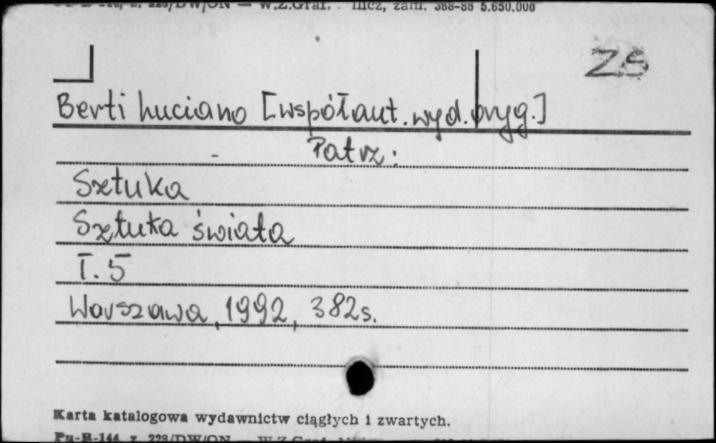 zam. 388-88 5.650.000
ZS
Berti Luciano [współaut. wyd. oryg.]
Patrz:
Sztuka
Sztuka świata
T. 5
Warszawa, 1992, 382 s.
Karta katalogowa wydawnictw ciągłych i zwartych.
Pu-B-144